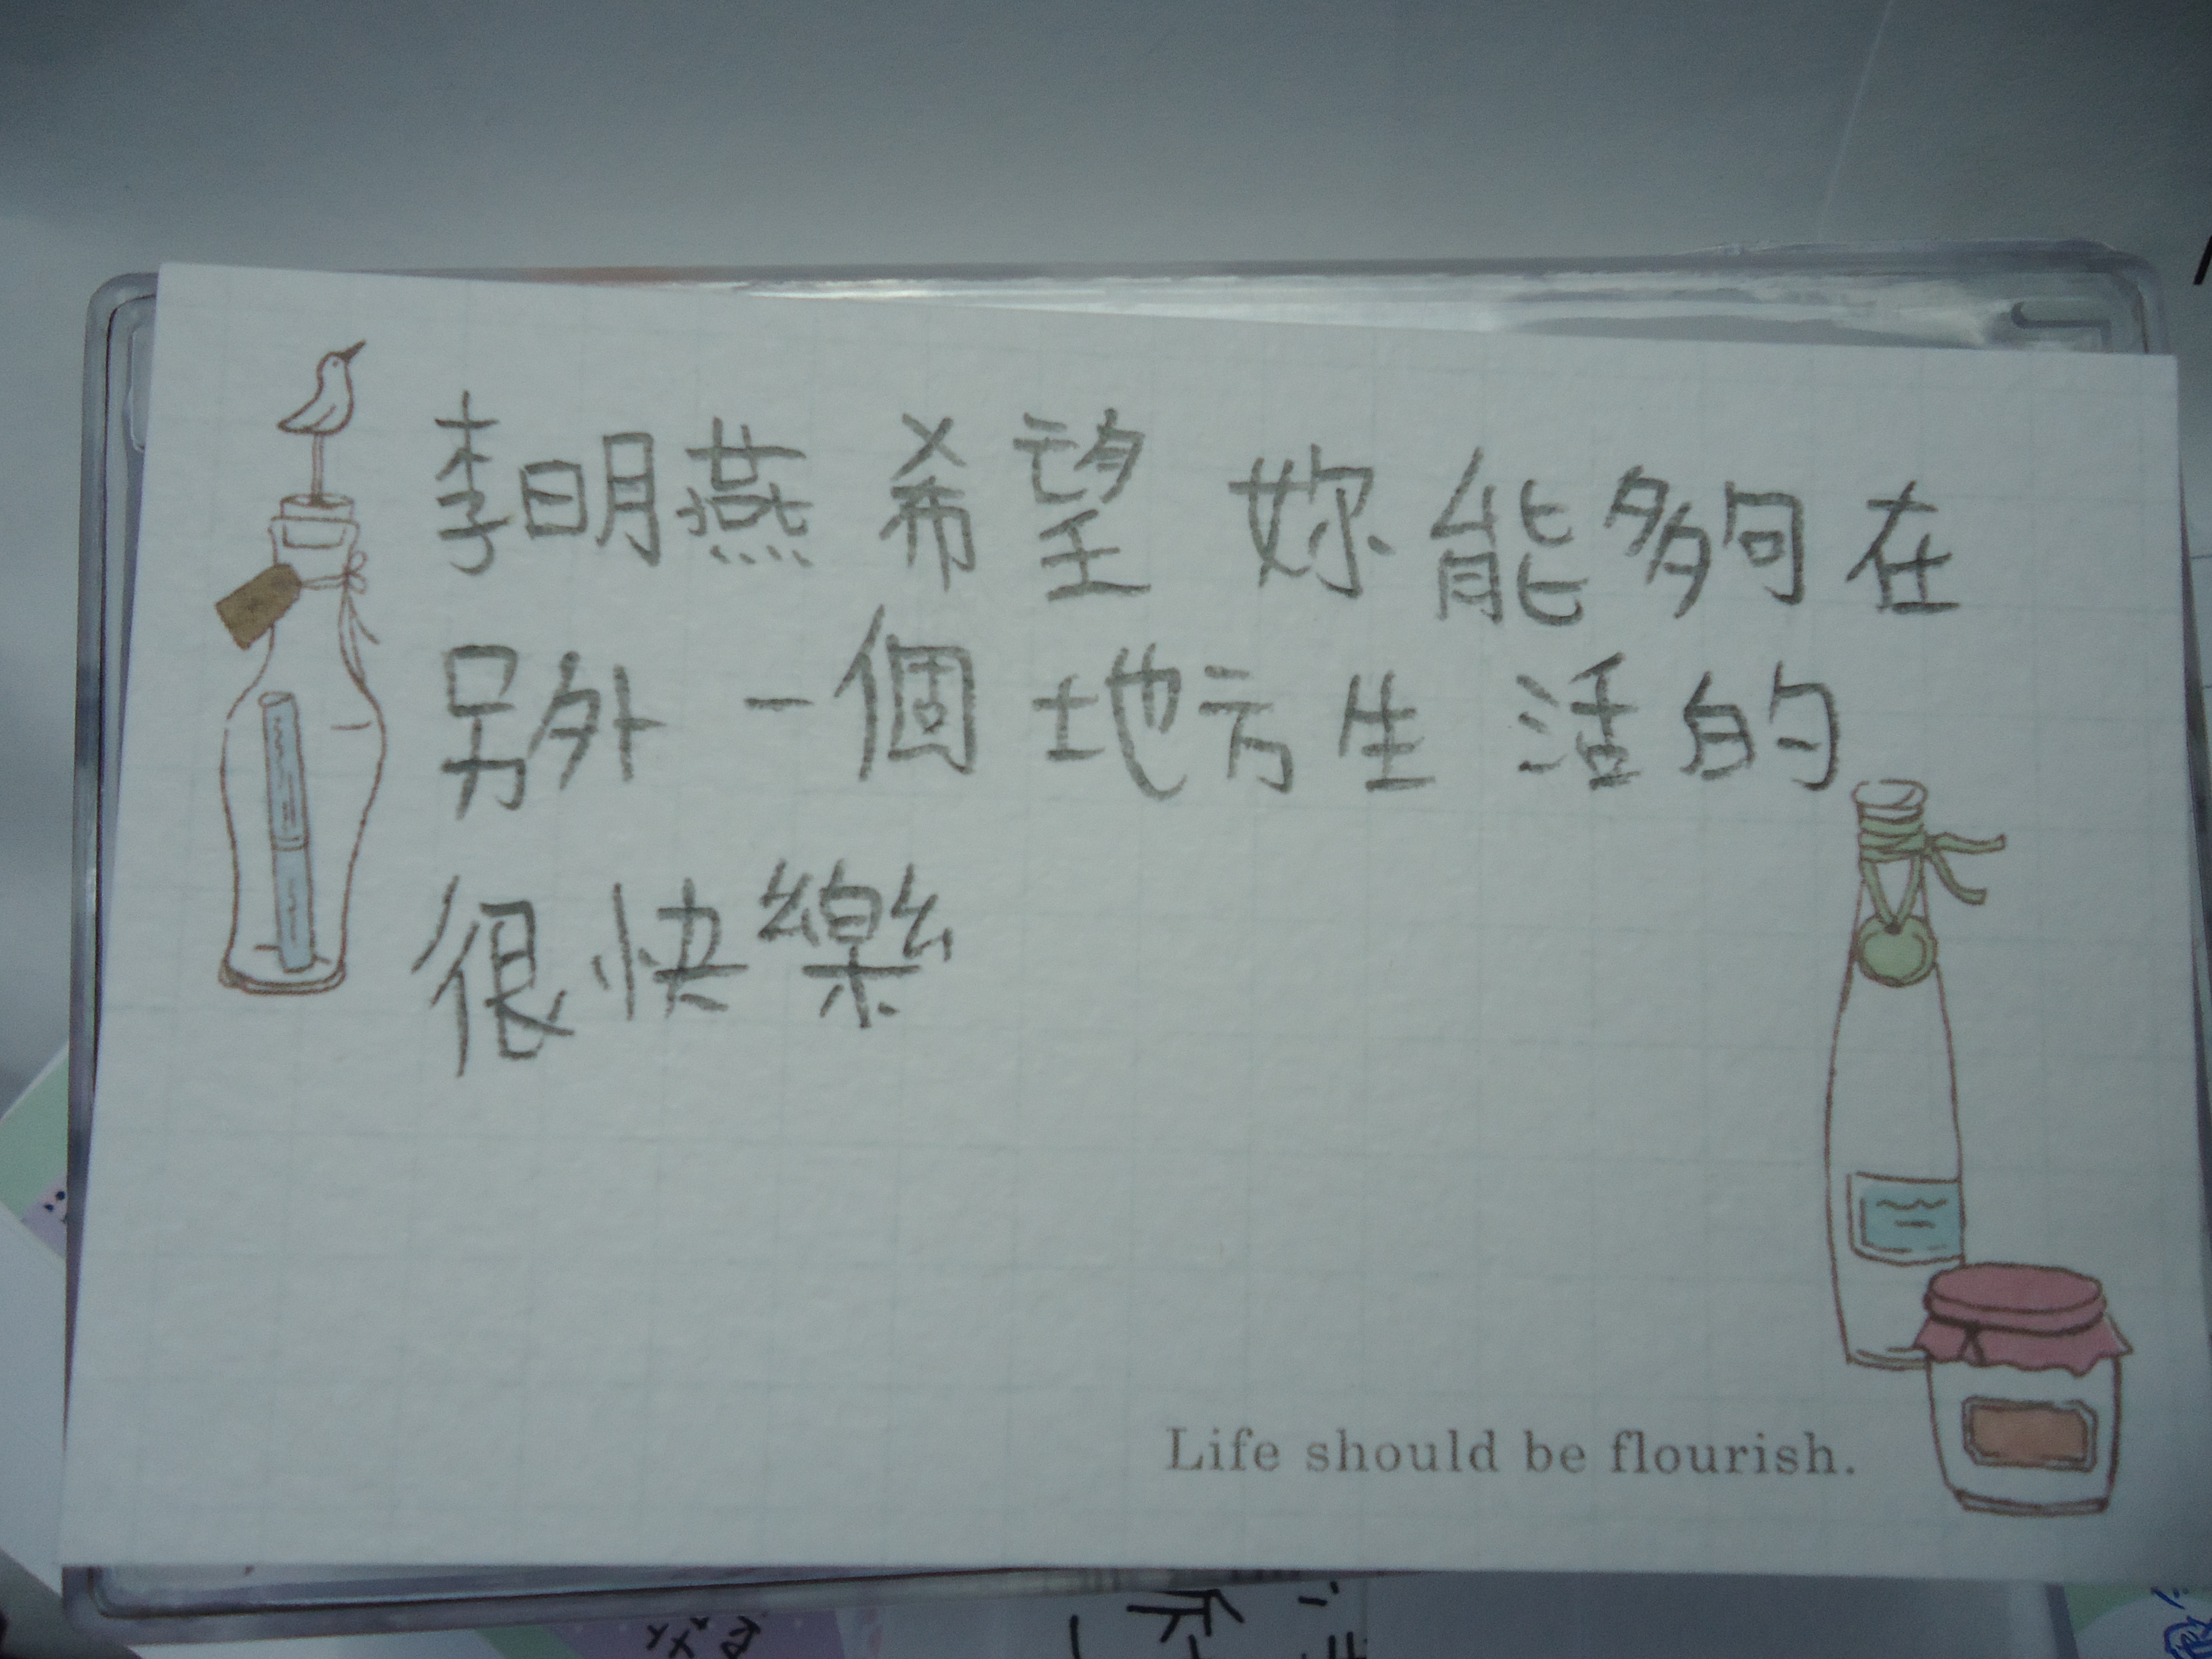 李明燕 希望 妳能夠在
另外一個地方生活的
很快樂
Life should be flourish.